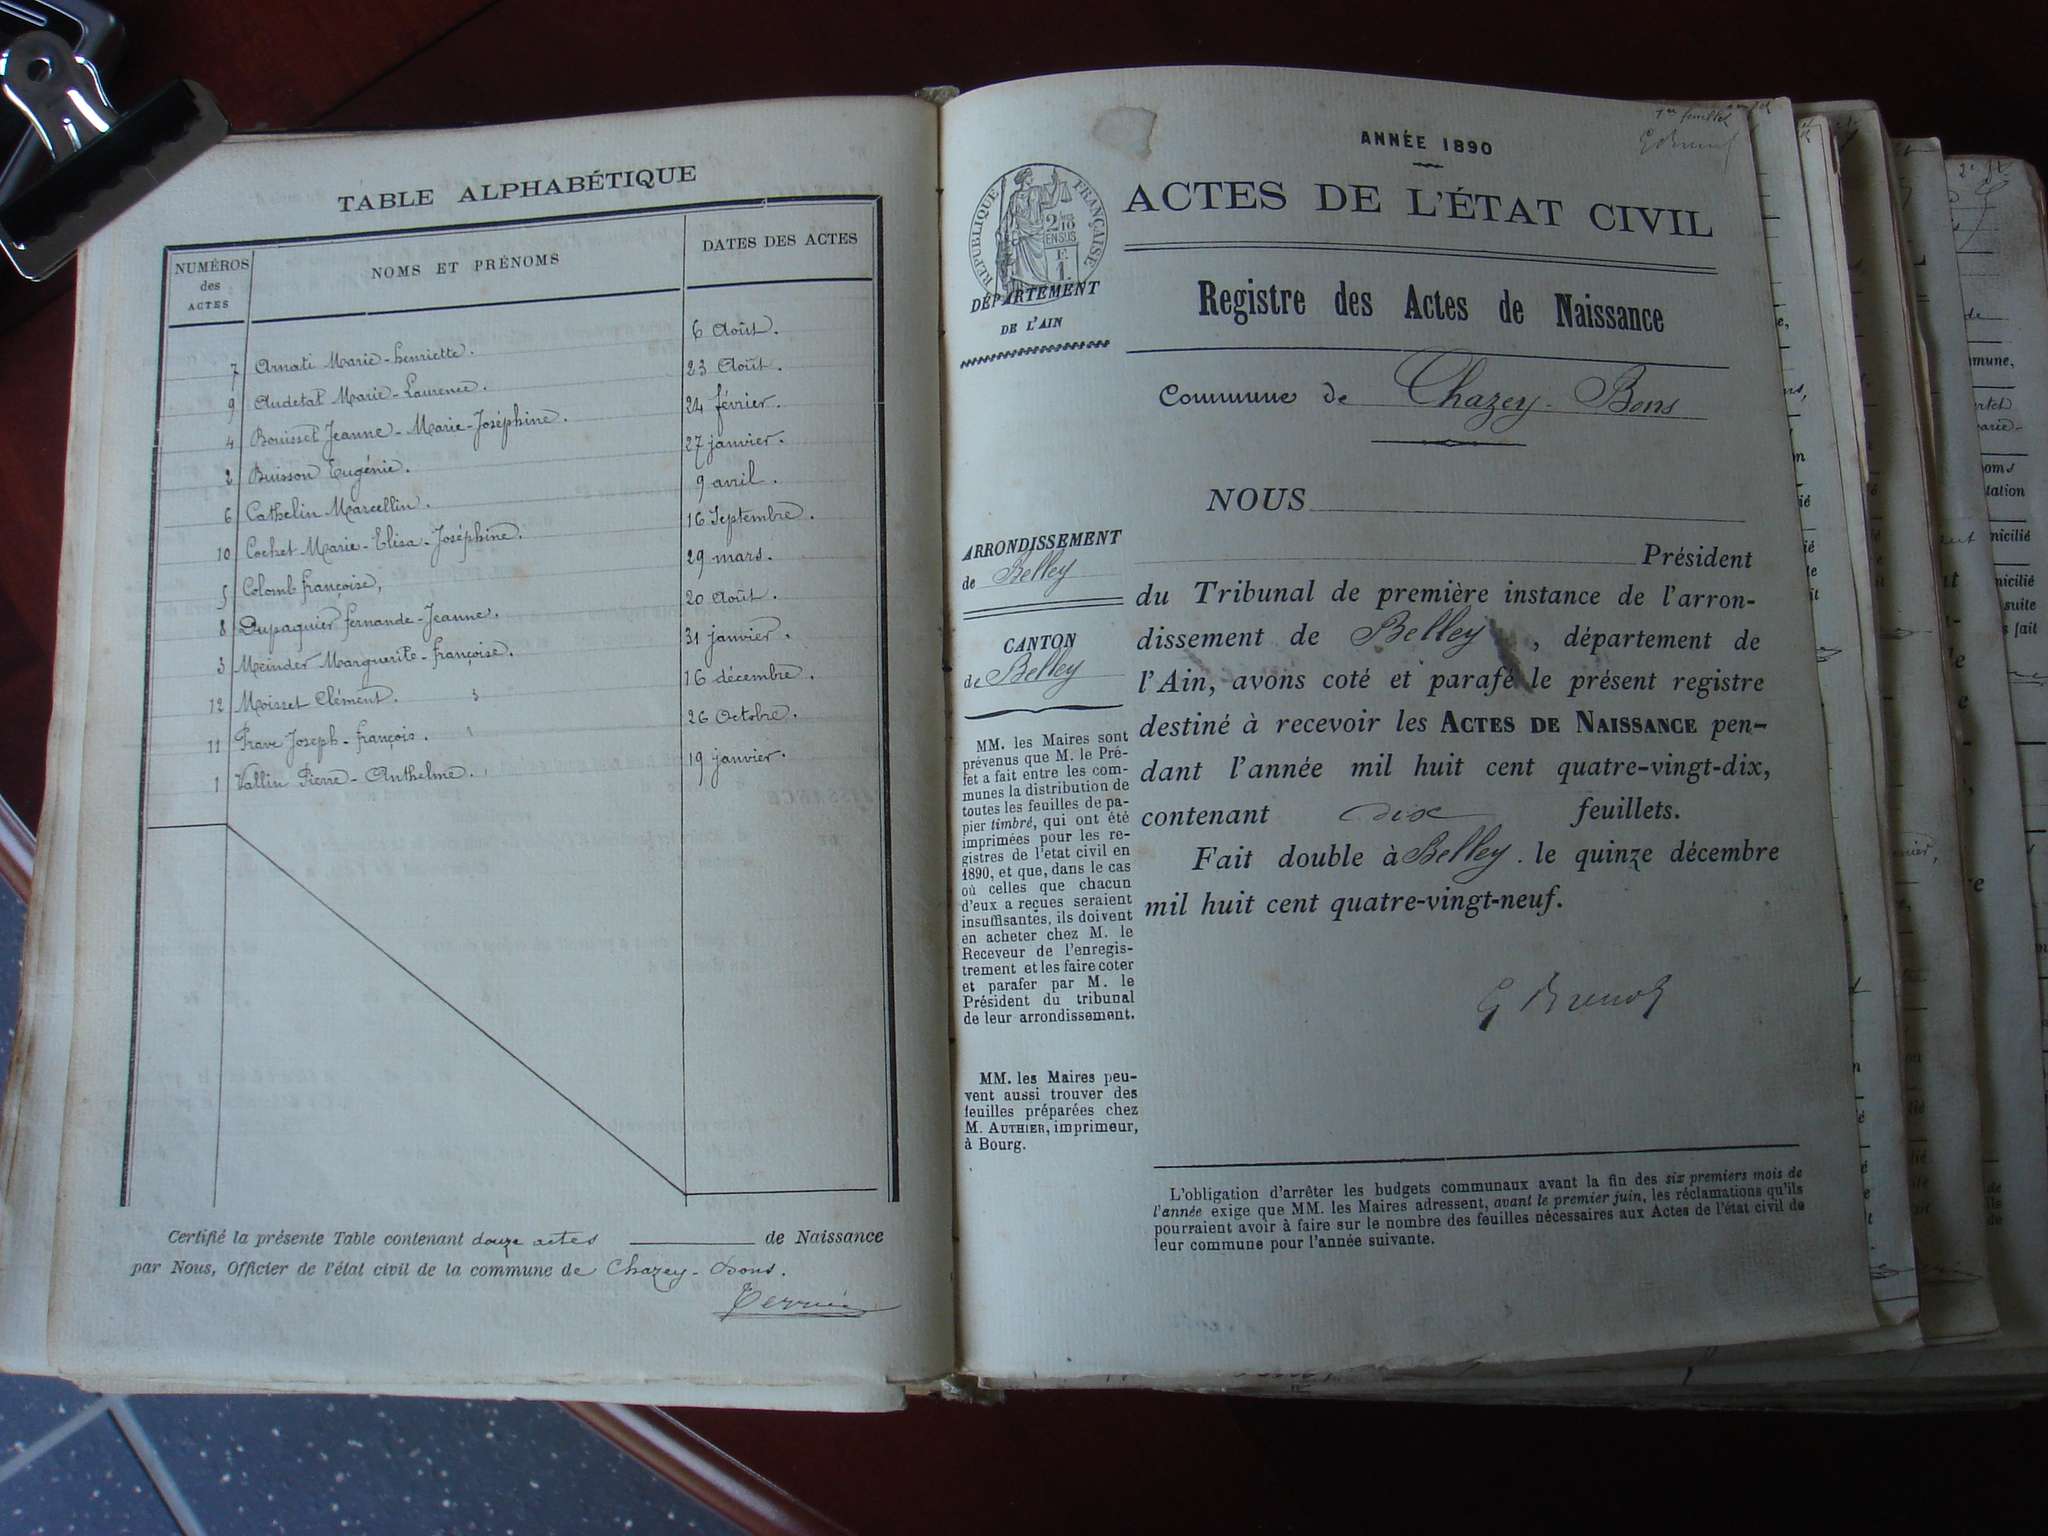 TABLE ALPHABÉTIQUE
NUMÉROS des ACTES
NOMS ET PRÉNOMS
DATES DES ACTES
7 Arnati Marie-henriette. 6 Août.
9 Audetat Marie-Laurence. 23 Août.
4 Bouisset Jeanne-Marie-Joséphine. 24 février.
2 Buisson Eugénie. 27 janvier.
6 Cathelin Marcellin. 9 avril.
10 Cochet Marie-Elisa-Joséphine. 16 Septembre.
5 Colomb françoise, 29 mars.
8 Dupasquier fernande-Jeanne. 20 Août.
3 Meinder Marguerite-françoise. 31 janvier.
12 Moisset Clément. 16 décembre.
11 Prave Joseph-françois. 26 Octobre.
1 Vallin Pierre-Anthelme. 19 janvier.
Certifié la présente Table contenant douze actes de Naissance
par Nous, Officier de l'état civil de la commune de Chazey-Bons.
ANNÉE 1890
1er feuillet
ACTES DE L'ÉTAT CIVIL
RÉPUBLIQUE FRANÇAISE
2/10 EN SUS
F. 1.
DÉPARTEMENT
DE L'AIN
Registre des Actes de Naissance
Commune de Chazey-Bons
ARRONDISSEMENT
de Belley
CANTON
de Belley
MM. les Maires sont
prévenus que M. le Pré-
fet a fait entre les com-
munes la distribution de
toutes les feuilles de pa-
pier timbré, qui ont été
imprimées pour les re-
gistres de l'etat civil en
1890, et que, dans le cas
où celles que chacun
d'eux a reçues seraient
insuffisantes, ils doivent
en acheter chez M. le
Receveur de l'enregis-
trement et les faire coter
et parafer par M. le
Président du tribunal
de leur arrondissement.
MM. les Maires peu-
vent aussi trouver des
feuilles préparées chez
M. AUTHIER, imprimeur,
à Bourg.
NOUS
Président
du Tribunal de première instance de l'arron-
dissement de Belley, département de
l'Ain, avons coté et parafé le présent registre
destiné à recevoir les ACTES DE NAISSANCE pen-
dant l'année mil huit cent quatre-vingt-dix,
contenant dix feuillets.
Fait double à Belley. le quinze décembre
mil huit cent quatre-vingt-neuf.
L'obligation d'arrêter les budgets communaux avant la fin des six premiers mois de
l'année exige que MM. les Maires adressent, avant le premier juin, les réclamations qu'ils
pourraient avoir à faire sur le nombre des feuilles nécessaires aux Actes de l'état civil de
leur commune pour l'année suivante.